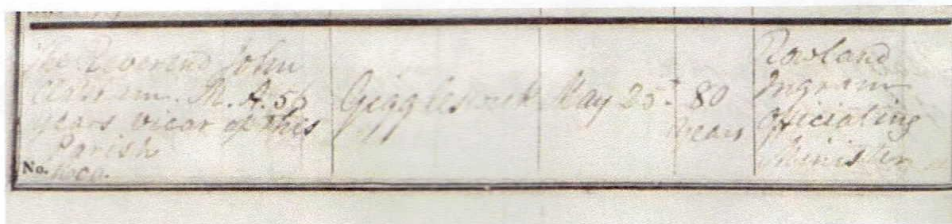 The Reverend John
M. A. 56
years vicar of this
Parish
No.
Giggleswick
May 25.
80
years
Rowland
Ingram
officiating
Minister